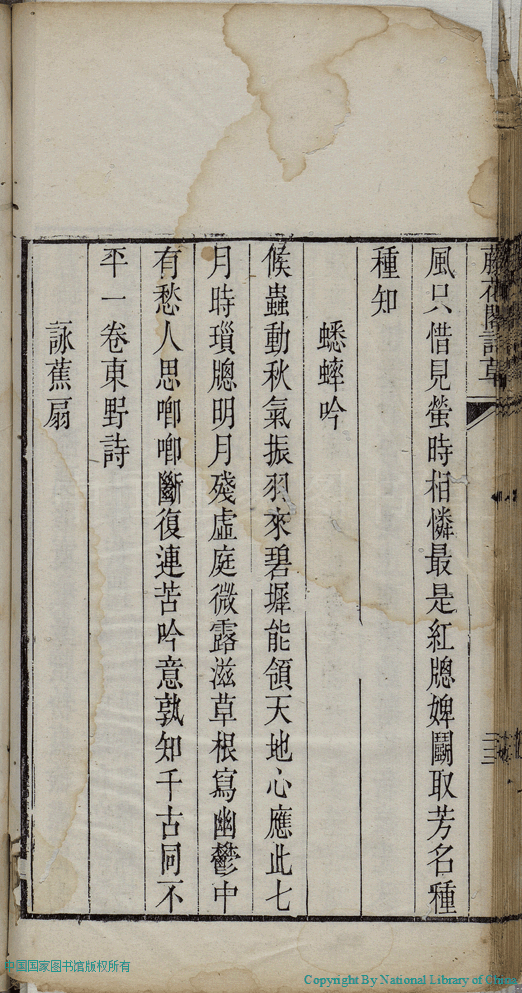 藤花閣詩草
風只借見螢時相憐最是紅牕婢鬭取芳名種
種知
蟋蟀吟
候蟲動秋氣振羽來碧墀能領天地心應此七
月時瑣牕明月殘虛庭微露滋草根寫幽鬱中
有愁人思喞喞斷復連苦吟意孰知千古同不
平一卷東野詩
詠蕉扇
三
中国国家图书馆版权所有
Copyright By National Library of China